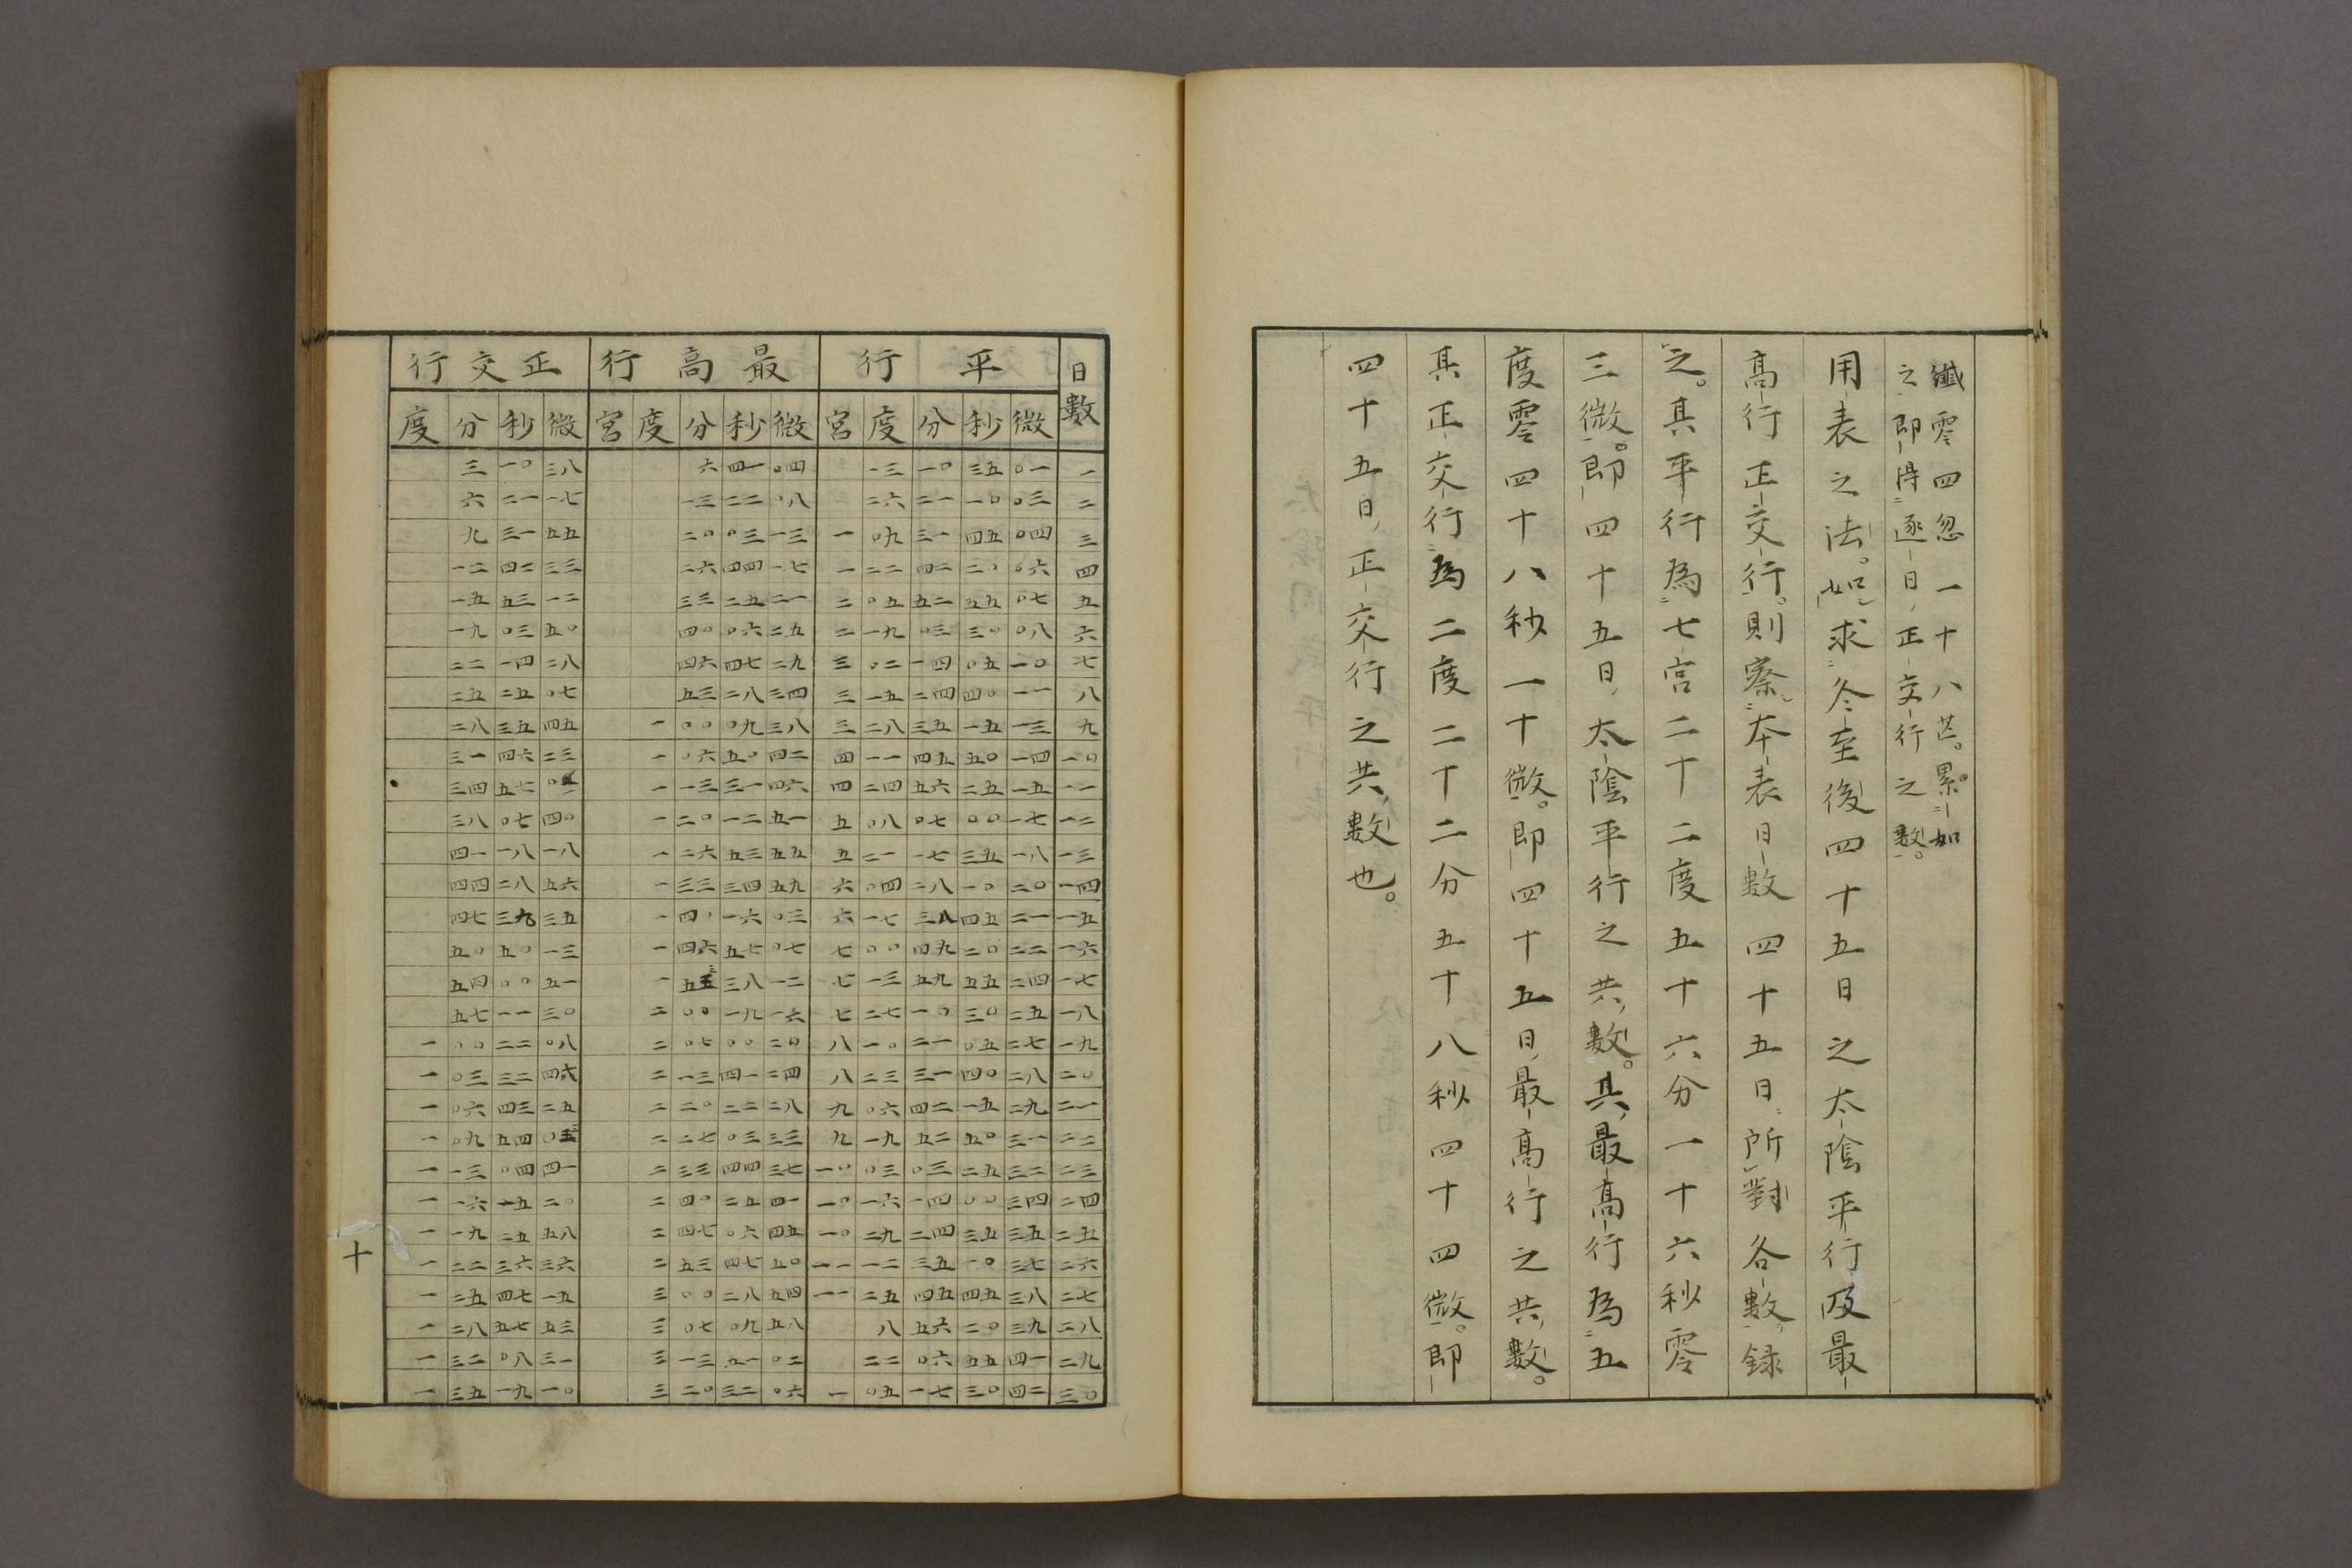 纖零四忽一十八芒。累如
之即得逐日正交行之數。
用表之法。如求冬至後四十五日之太陰平行及最
高行正交行。則察本表日數四十五日所對各數錄
之。其平行為七宮二十二度五十六分一十六秒零
三微。即四十五日太陰平行之共數。其最高行為五
度零四十八秒一十微。即四十五日最高行之共數。
其正交行為二度二十二分五十八秒四十四微。即
四十五日正交行之共數也。
日數 平行 最高行 正交行
微 秒 分 度 宮 微 秒 分 度 宮 微 秒 分 度
一 〇一 三五 一〇 一三 〇四 四一 六 三八 一〇 三
二 〇三 一〇 二一 二六 〇八 二二 一三 一七 二一 六
三 〇四 四五 三一 〇九 一 一三 〇三 二〇 五五 三一 九
四 〇六 二〇 四二 二二 一 一七 四四 二六 三三 四二 一二
五 〇七 五五 五二 〇五 二 二一 二五 三三 一二 五三 一五
六 〇八 三〇 〇三 一九 二 二五 〇六 四〇 五〇 〇三 一九
七 一〇 〇五 一四 〇二 三 二九 四七 四六 二八 一四 二二
八 一一 四〇 二四 一五 三 三四 二八 五三 〇七 二五 二五
九 一三 一五 三五 二八 三 三八 〇九 〇〇 一 四五 三五 二八
一〇 一四 五〇 四五 一一 四 四二 五〇 〇六 一 二三 四六 三一
一一 一五 二五 五六 二四 四 四六 三一 一三 一 〇二 五七 三四
一二 一七 〇〇 〇七 〇八 五 五一 一二 二〇 一 四〇 〇七 三八
一三 一八 三五 一七 二一 五 五五 五三 二六 一 一八 一八 四一
一四 二〇 一〇 二八 〇四 六 五九 三四 三三 一 五六 二八 四四
一五 二一 四五 三八 一七 六 〇三 一六 四〇 一 三五 三九 四七
一六 二二 二〇 四九 〇〇 七 〇七 五七 四六 一 一三 五〇 五〇
一七 二四 五五 五九 一三 七 一二 三八 五三 一 五一 〇〇 五四
一八 二五 三〇 一〇 二七 七 一六 一九 〇〇 二 三〇 一一 五七
一九 二七 〇五 二一 一〇 八 二〇 〇〇 〇七 二 〇八 二二 〇〇 一
二〇 二八 四〇 三一 二三 八 二四 四一 一三 二 四六 三二 〇三 一
二一 二九 一五 四二 〇六 九 二八 二二 二〇 二 二五 四三 〇六 一
二二 三一 五〇 五二 一九 九 三三 〇三 二七 二 〇三 五四 〇九 一
二三 三二 二五 〇三 〇三 一〇 三七 四四 三三 二 四一 〇四 一三 一
二四 三四 〇〇 一四 一六 一〇 四一 二五 四〇 二 二〇 一五 一六 一
二五 三五 三五 二四 二九 一〇 四五 〇六 四七 二 五八 二五 一九 一
二六 三七 一〇 三五 一二 一一 五〇 四七 五三 二 三六 三六 二二 一
二七 三八 四五 四五 二五 一一 五四 二八 〇〇 三 一五 四七 二五 一
二八 三九 二〇 五六 八 五八 〇九 〇七 三 五三 五七 二八 一
二九 四一 五五 〇六 二二 〇二 五一 一三 三 三一 〇八 三二 一
三〇 四二 三〇 一七 〇五 一 〇六 三二 二〇 三 一〇 一九 三五 一
十